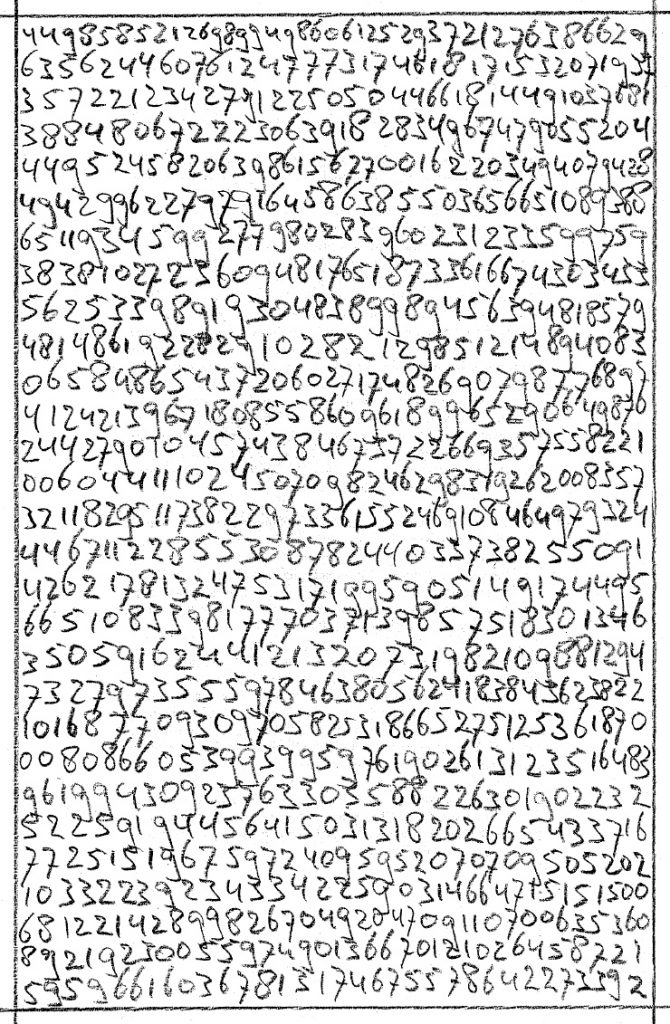 449858521269899498606125293721276386629
635624460761247773174618171532071937
357221234279122505044661814491037681
38884806722230639182834967479055204
4495245820639861562700162203494079428
49429962279791645863855503656651089388
6511934599277980283960231233599759
383810272236094817651873361667430345 3
562533989193048389989456394818579
481486192282910282129851214894083
065848654372060271748269079877689 7
41242139671808558609618996529064987 0
244279010457438467372266935755822 1
006044111024507098246298319262008357
321182951173822973361552469108464979324
446711228553087824403373825509 1
426217813247531719959051491744495
665108339817770371398575183013 46
350591624441213207319821098812 94
732797355597846380562418384362382 2
10168770930970582531866527512536 1870
00808660539939959761902613123516483
961994430923763303588226301902232
522591944564150313182026654337 16
772515196759724095952070709505202
1033223923433422590314664715151500
681221428998267049204709110700635360
892192300559749013667012102645872 21
595966160367813174675578642273392